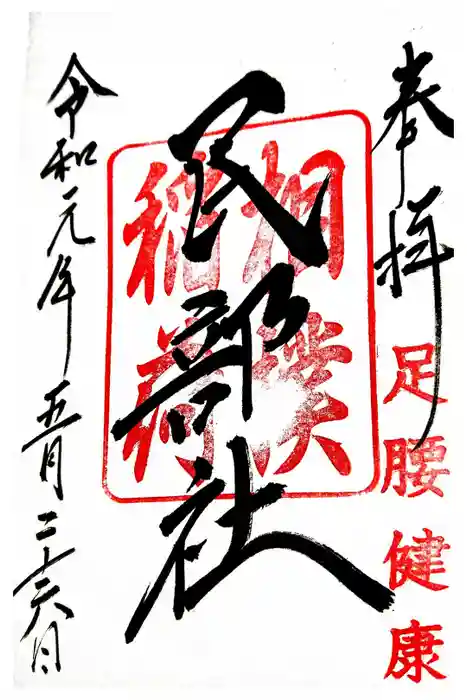 奉拝
足腰健康
相撲
稲荷
民部社
令和元年五月二十六日